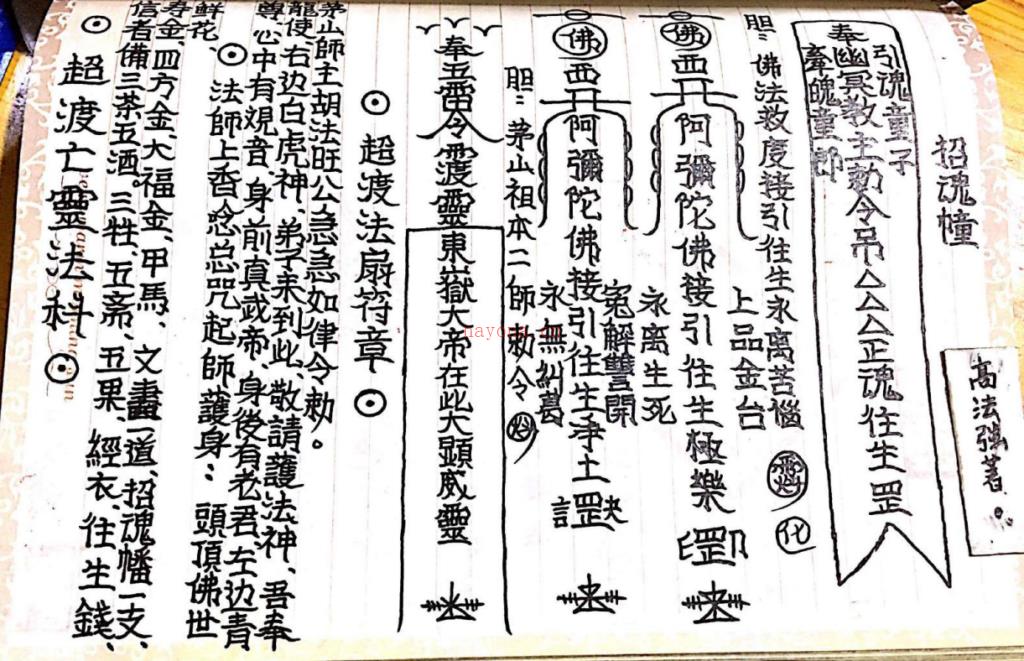 ⊙ 超渡亡靈法科 ⊙
信者備三茶五酒。三牲、五斋、五果、經衣、往生錢、
寿金、四方金、大福金、甲馬、文書一道、招魂幡一支、
鮮花、
⊙ 法師上香念总咒起師護身：頭頂佛世
尊心中有观音、身前真武帝、身後有老君、左边青
龍使右边白虎神、弟子来到此、敬請護法神、吾奉
茅山師主胡法旺公急急如律令勅。
⊙ 超渡法扇符章 ⊙
奉五雷令渡靈東嶽大帝在此大顯威靈
胆：茅山祖本二師勅令
佛西阿彌陀佛接引往生淨土罡訣
永無糾葛
冤解讐開
佛西阿彌陀佛接引往生極樂罡印
永离生死
上品金台
胆：佛法救度接引往生永离苦惱
化
奉幽冥教主勅令吊△△△正魂往生罡
引魂童子
童郎
招魂幢
高法強著。
nayona.cn